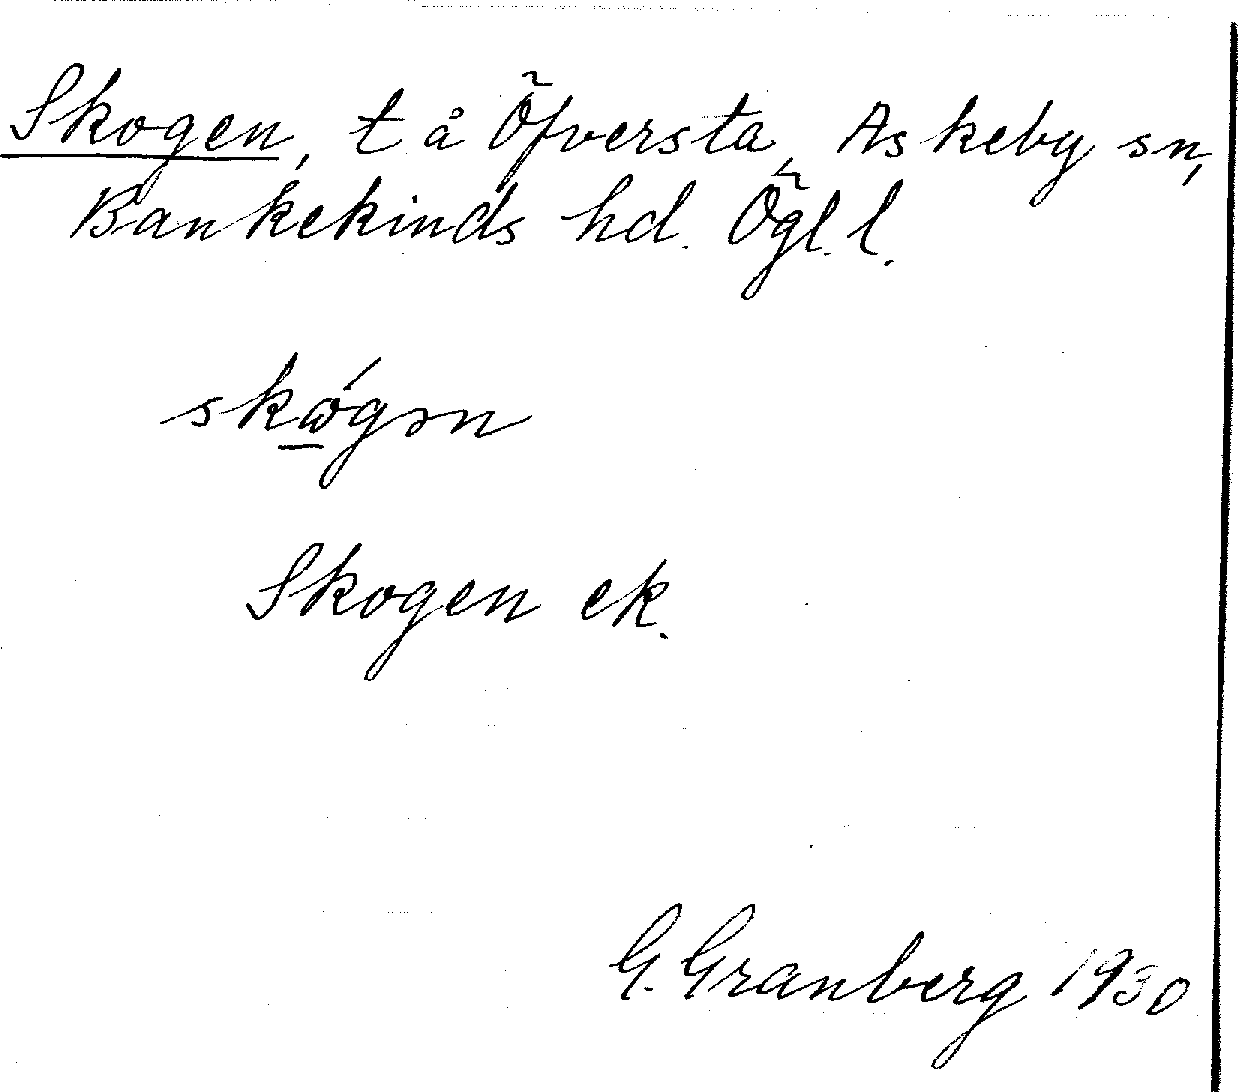 Skogen, t å Öfversta, Askeby sn,
Bankekinds hd. Ögl. l.
skώ̲gən
Skogen ek.
G. Granberg 1930